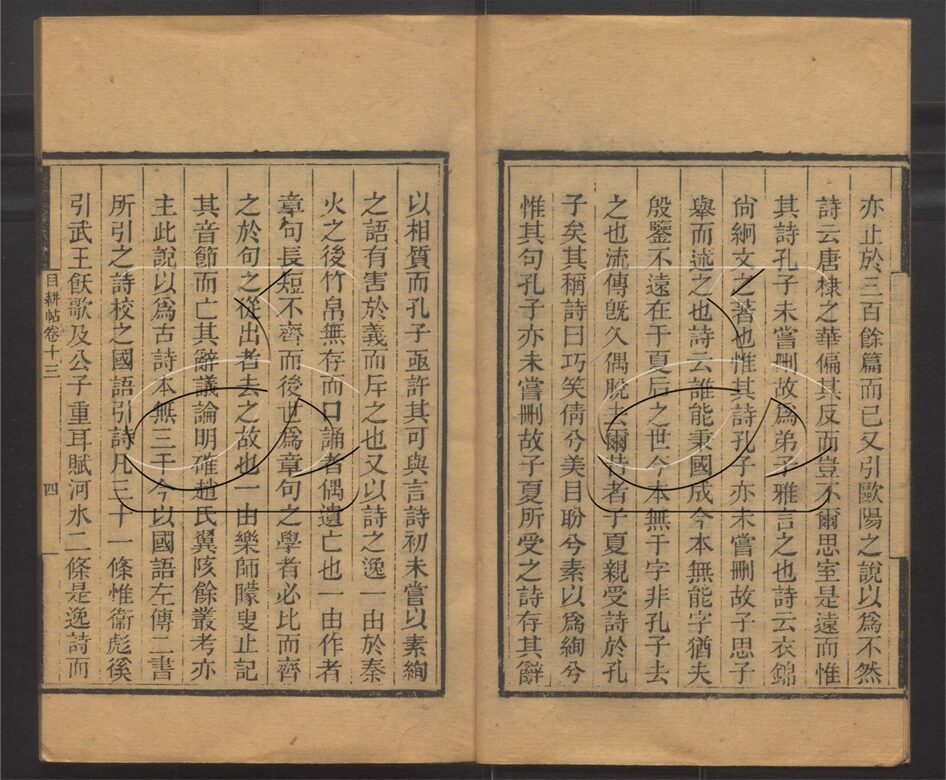 亦止於三百餘篇而已又引歐陽之說以爲不然
詩云唐棣之華偏其反而豈不爾思室是遠而惟
其詩孔子未嘗刪故爲弟子雅言之也詩云衣錦
尙絅文之著也惟其詩孔子亦未嘗刪故子思子
舉而述之也詩云誰能秉國成今本無能字猶夫
殷鑒不遠在于夏后之世今本無于字非孔子去
之也流傳旣久偶脫去爾昔者子夏親受詩於孔
子矣其稱詩曰巧笑倩兮美目盼兮素以爲絢兮
惟其句孔子亦未嘗刪故子夏所受之詩存其辭
以相質而孔子亟許其可與言詩初未嘗以素絢
之語有害於義而斥之也又以詩之逸一由於秦
火之後竹帛無存而口誦者偶遺亡也一由作者
章句長短不齊而後世爲章句之學者必比而齊
之於句之從出者去之故也一由樂師矇叟止記
其音節而亡其辭議論明確趙氏翼陔餘叢考亦
主此說以爲古詩本無三千今以國語左傳二書
所引之詩校之國語引詩凡三十一條惟衞彪傒
引武王飫歌及公子重耳賦河水二條是逸詩而
目耕帖卷十三
四